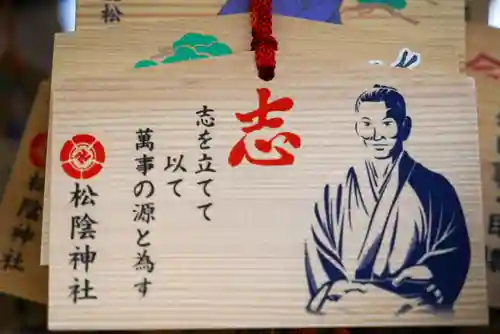 志
志を立てて
以て
萬事の源と為す
松陰神社
松
松陰神社